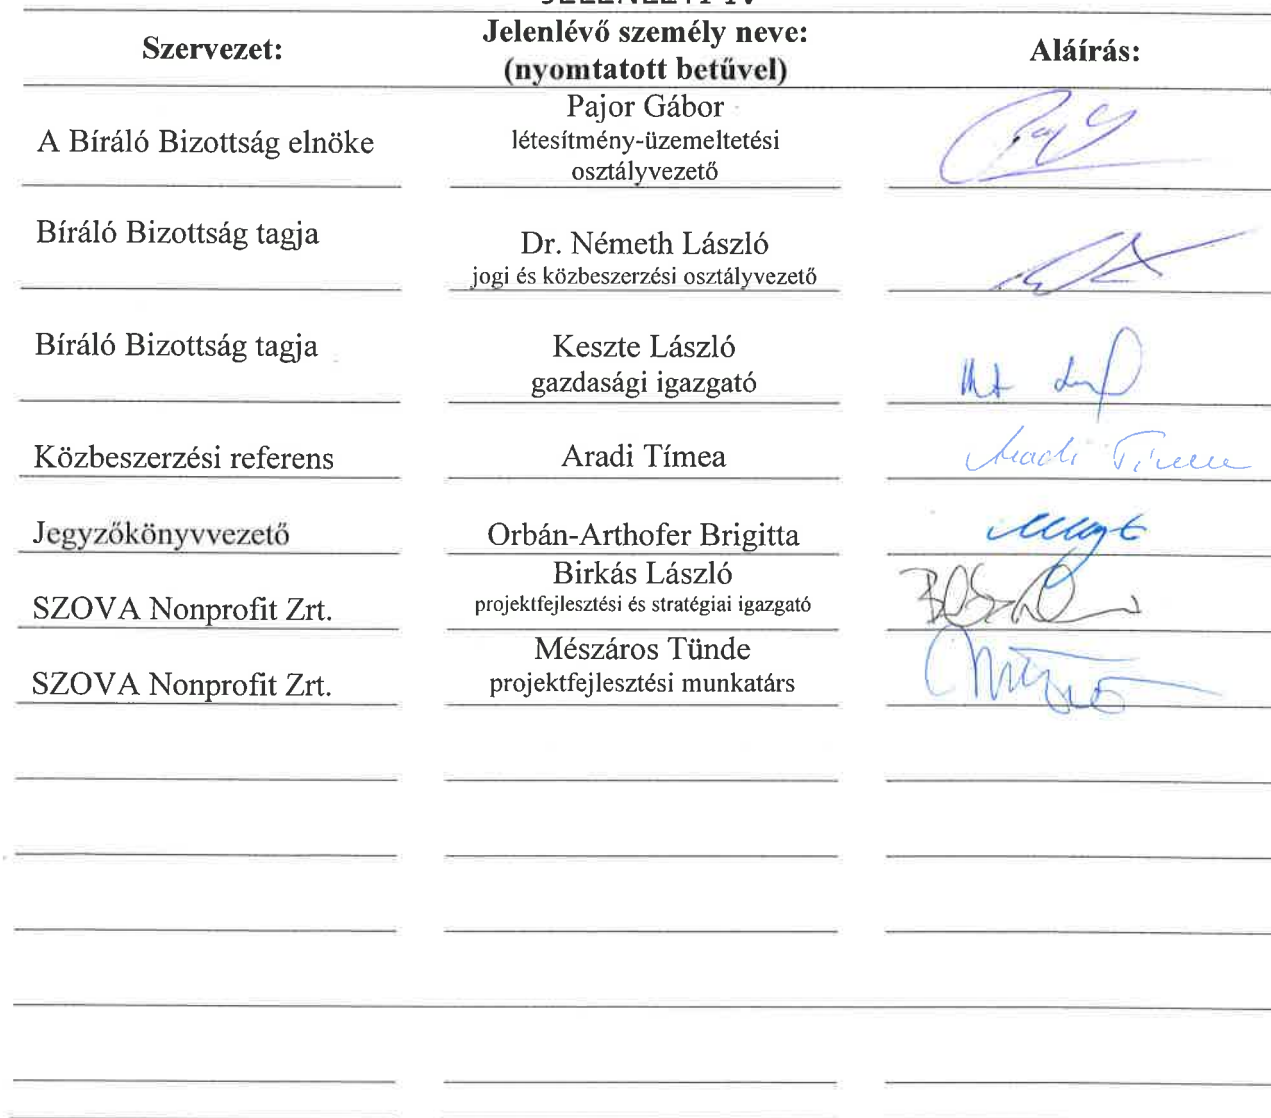 JELENLÉTI ÍV
Szervezet:
Jelenlévő személy neve:
(nyomtatott betűvel)
Aláírás:
A Bíráló Bizottság elnöke
Pajor Gábor
létesítmény-üzemeltetési
osztályvezető
Bíráló Bizottság tagja
Dr. Németh László
jogi és közbeszerzési osztályvezető
Bíráló Bizottság tagja
Keszte László
gazdasági igazgató
Közbeszerzési referens
Aradi Tímea
Aradi Tímea
Jegyzőkönyvvezető
Orbán-Arthofer Brigitta
SZOVA Nonprofit Zrt.
Birkás László
projektfejlesztési és stratégiai igazgató
SZOVA Nonprofit Zrt.
Mészáros Tünde
projektfejlesztési munkatárs